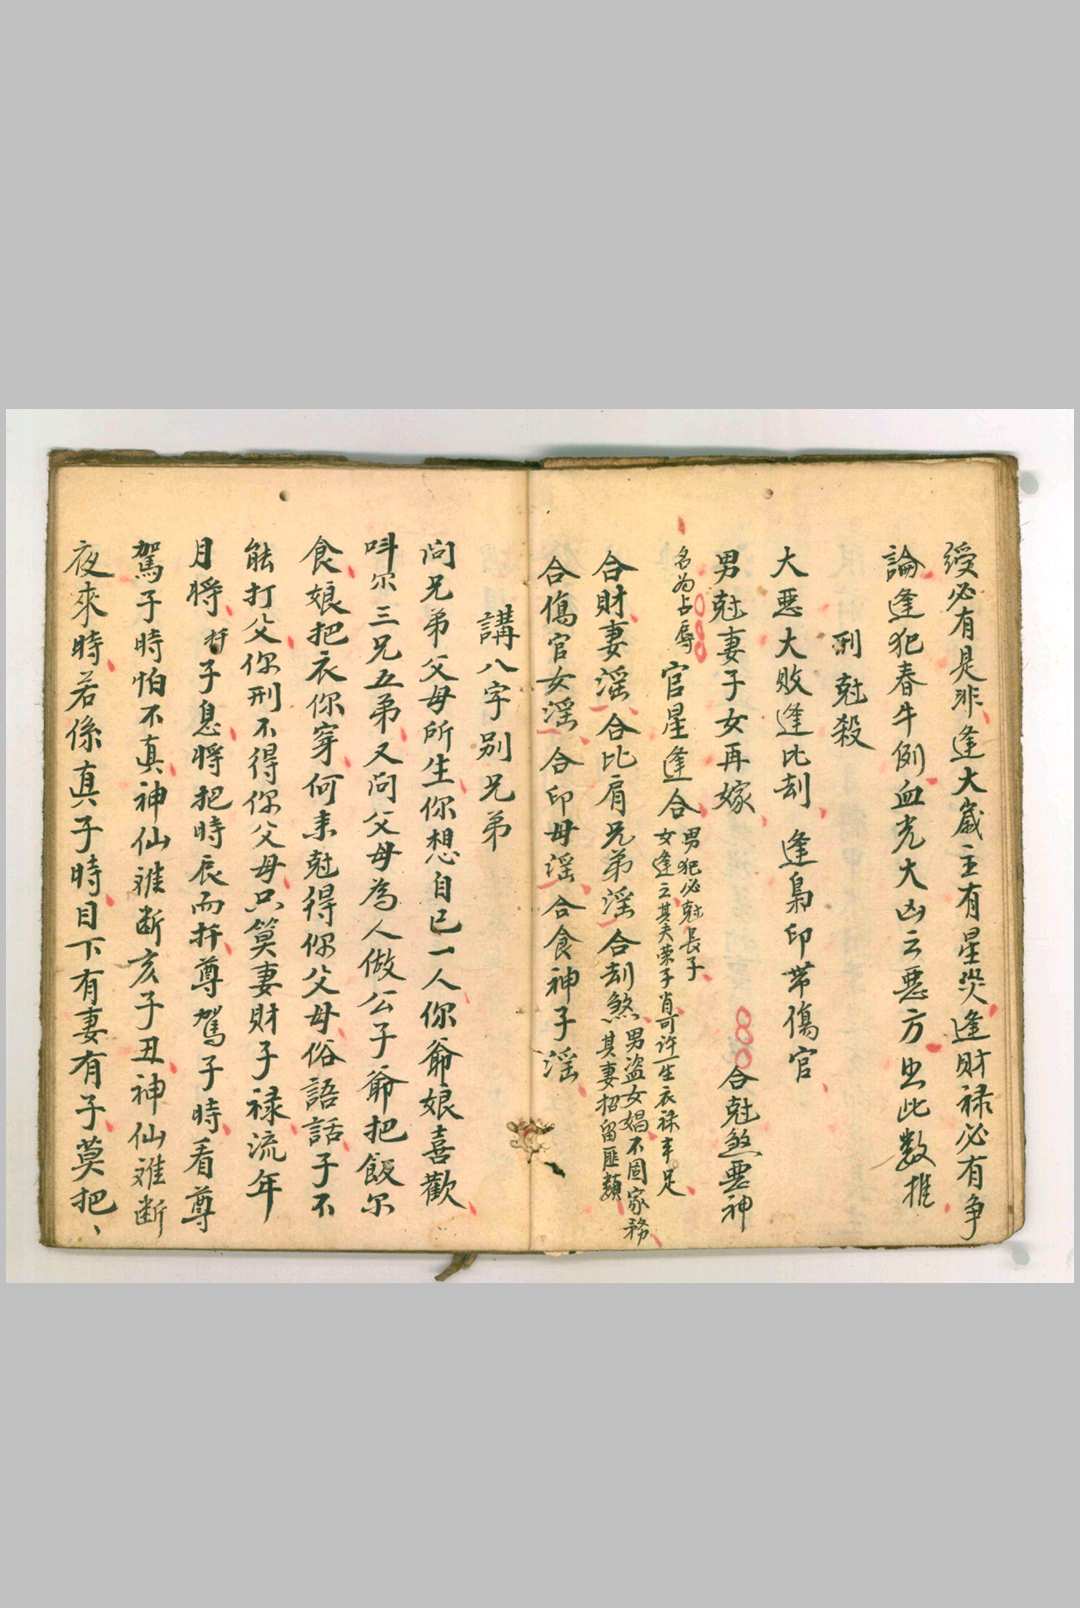 綬必有是非逢大歲主有星災逢財祿必有争
論逢犯春牛例血光大凶云惡方出此數推
刑尅殺
大惡大敗逢比刦　逢梟印帶傷官
男尅妻子女再嫁　合尅煞惡神
名为占辱　官星逢合
男犯必尅長子
女逢云其夫荣子肖可许一生衣祿丰足
合財妻滛合比肩兄弟滛合刦煞
男盗女娼不固家務
其妻招留匪類
合傷官女滛合印母滛合食神子滛
講八字别兄弟
问兄弟父母所生你想自已一人你爺娘喜歡
呌尔三兄五弟又问父母為人做公子爺把飯尔
食娘把衣你穿何来尅得你父母俗語話子不
能打父你刑不得你父母只箅妻財子禄流年
月將子息將把時辰而扦尊駕子時看尊
駕子時怕不真神仙难断亥子丑神仙难断
夜來時若係真子時目下有妻有子莫把、